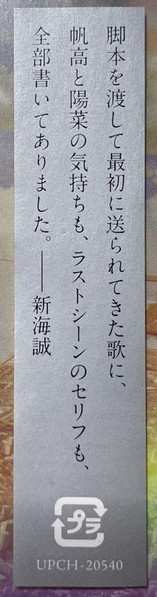 脚本を渡して最初に送られてきた歌に、
帆高と陽菜の気持ちも、ラストシーンのセリフも、
全部書いてありました。——新海誠
プラ
UPCH-20540